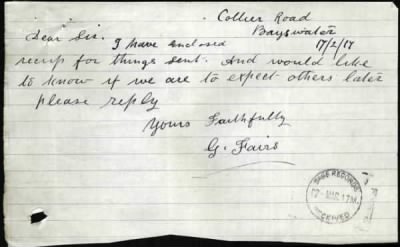 Collier Road
Bayswater
Dear Sir. 17/2/17
I have enclosed
recip for things sent. And would like
to know if we are to expect others later
please reply
Yours Faithfully
G. Fairs
BASE RECORDS
RECEIVED